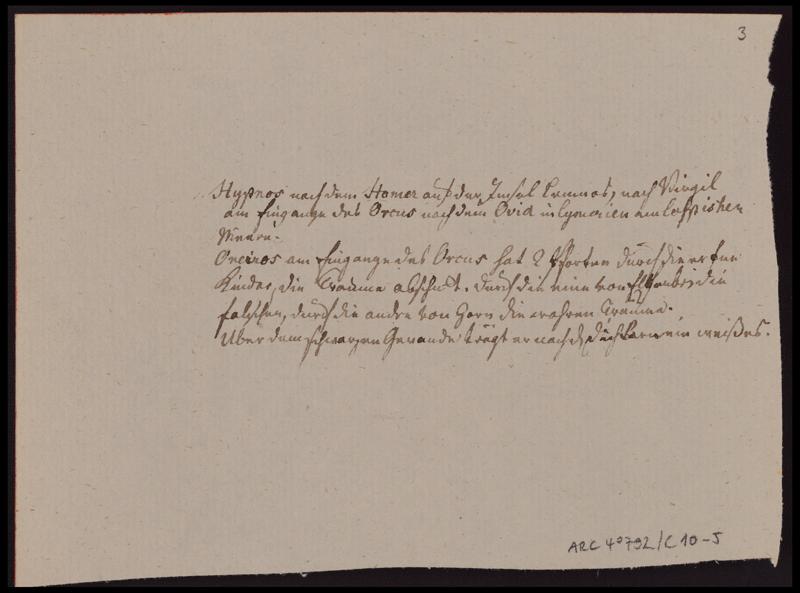 3
Hypnos nach dem Homer auf der Insel Lemnos, nach Virgil
am Eingange des Orcus nach dem Ovid in Cymerien am Caspischen
Meere.
Oneiros am Eingange des Orcus hat 2 Pforten durch die er seine
Kinder, die Träume abschickt. Durch die eine von Elfenbein die
falschen, durch die andre von Horn die wahren Träume.
Über dem schwarzen Gewande trägt er nach den Dichtern ein weißes.
ARC 4°792/C 10-5